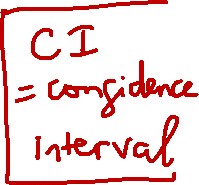 CI
= confidence
interval